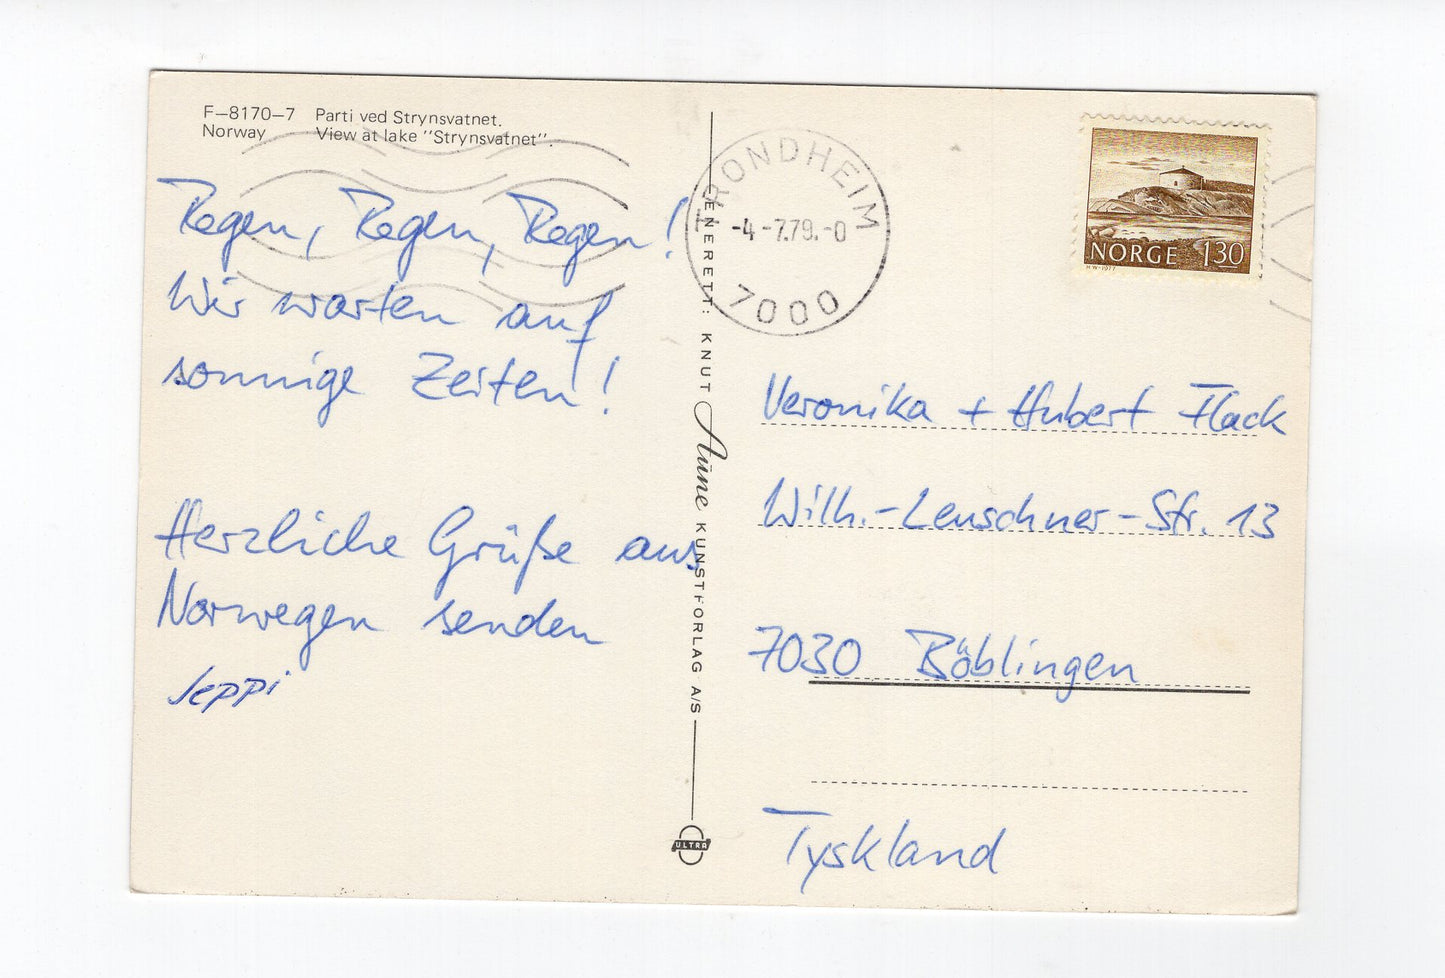 F–8170–7 Parti ved Strynsvatnet.
Norway View at lake "Strynsvatnet".
Regen, Regen, Regen!
Wir warten auf
sonnige Zeiten!
Herzliche Grüße aus
Norwegen senden
Jeppi
ENERETT: KNUT Aune KUNSTFORLAG A/S
ULTRA
TRONDHEIM
-4-7.79.-0
7000
NORGE 1.30
Veronika + Hubert Flack
Wilh.-Leuschner-Str. 13
7030 Böblingen
Tyskland